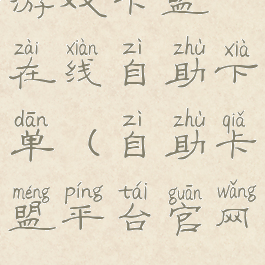 游戏卡盟
zài xiàn zì zhù xià
在线自助下
dān zì zhù qiǎ
单（自助卡
méng píng tái guān wǎng
盟平台官网